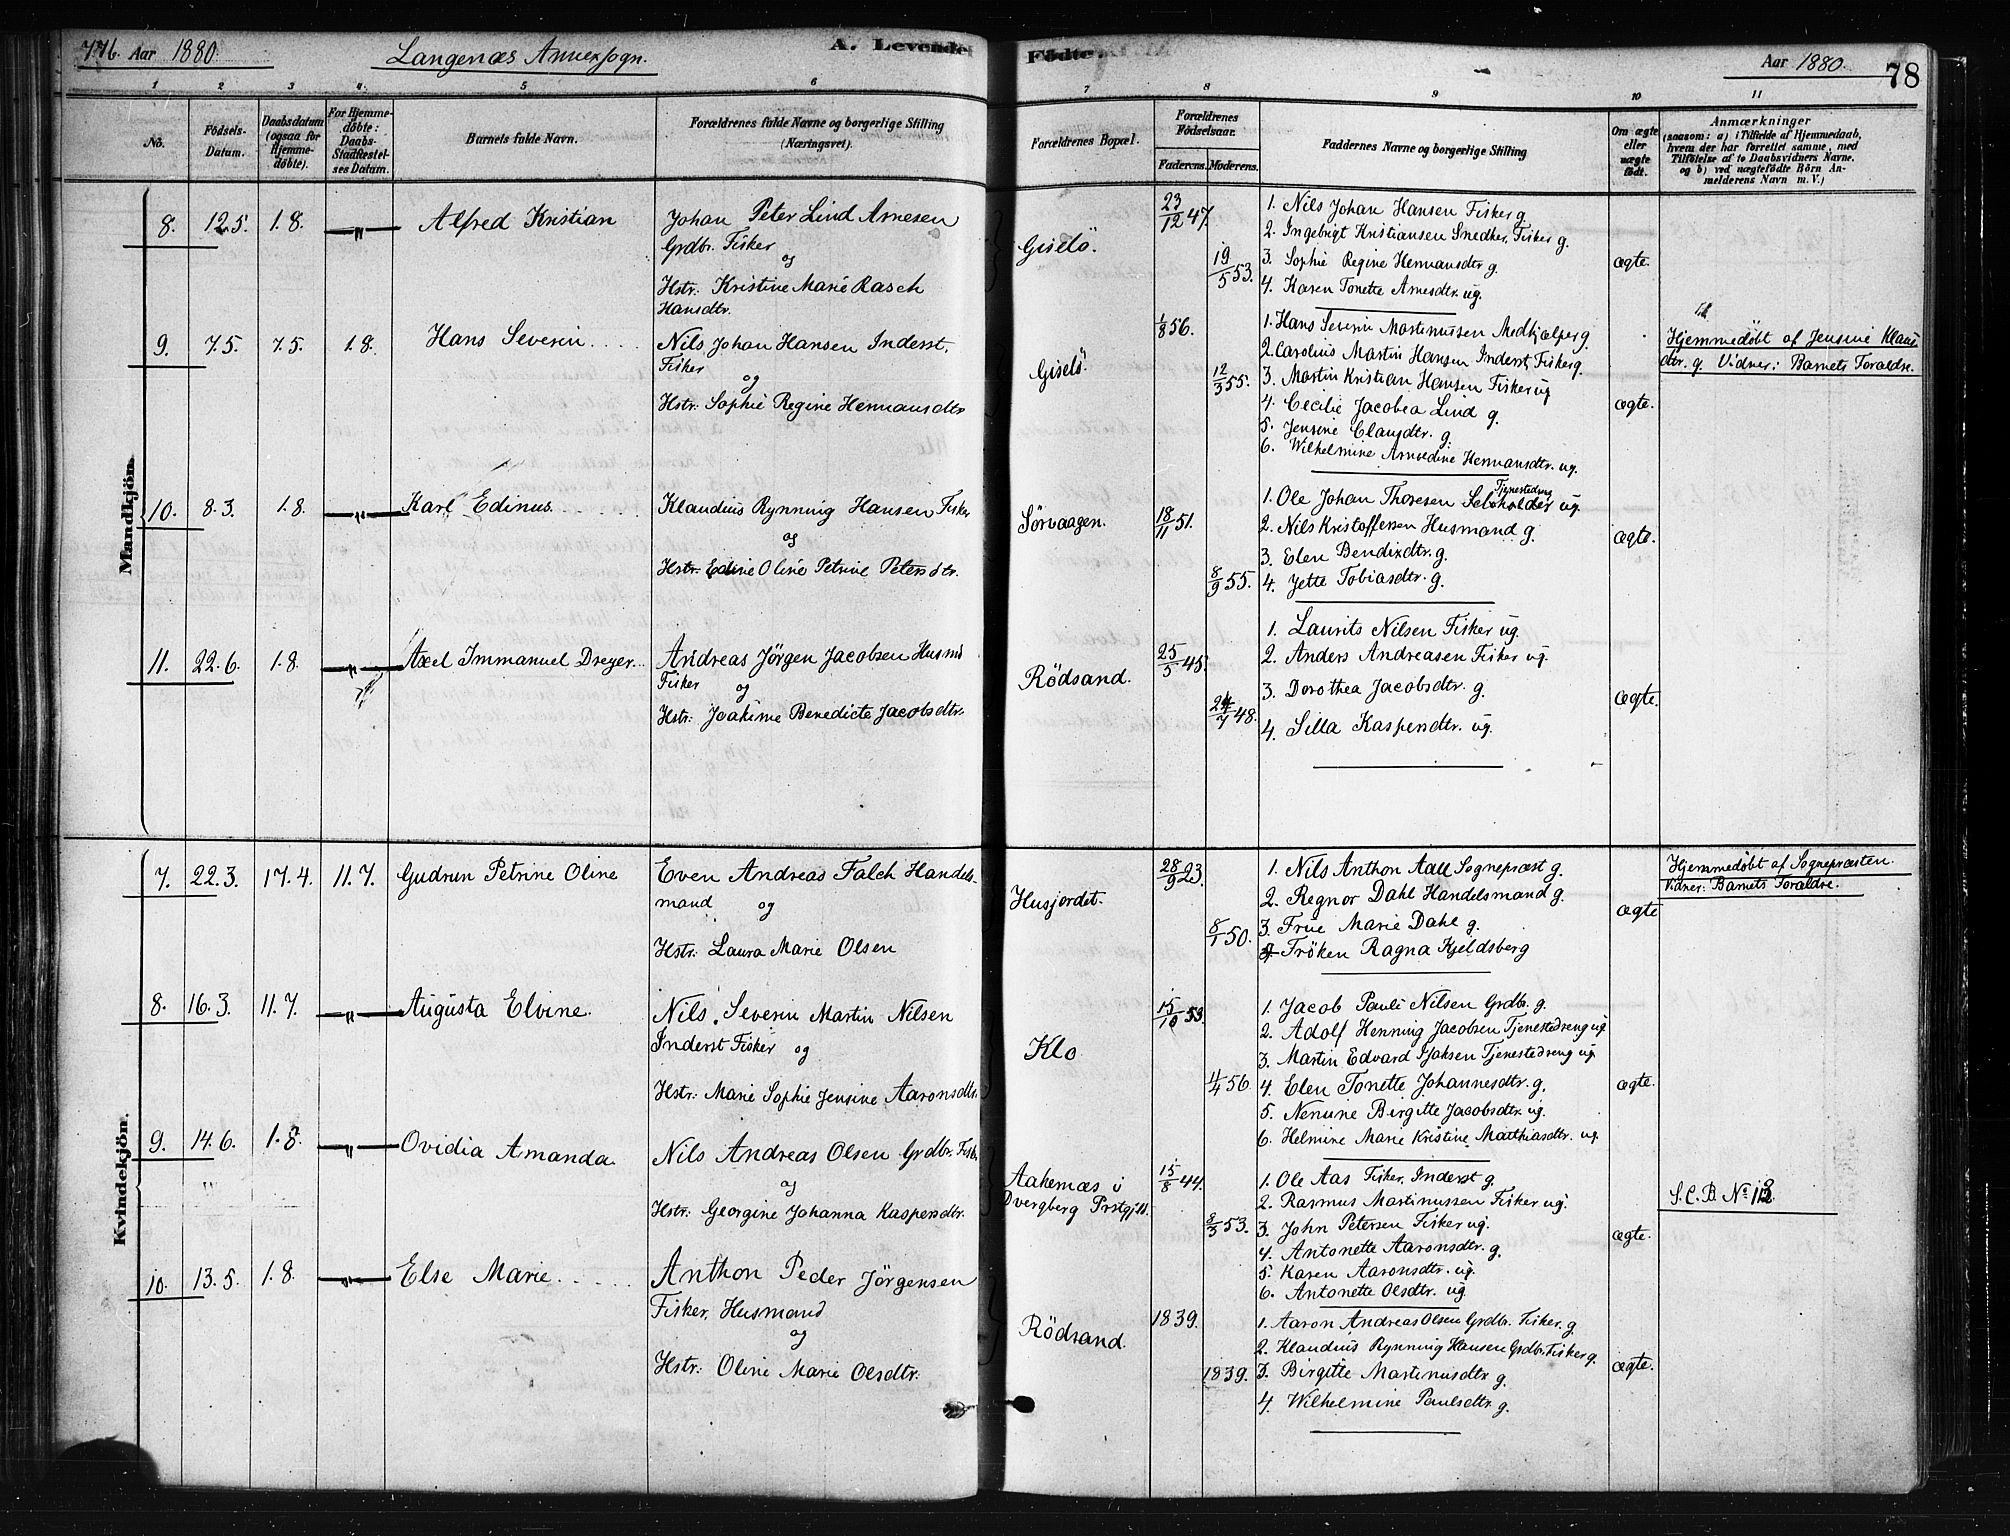 776. Aar 1880. Langenæs Annexsogn. A. Levende Fødte. Aar 1880. 78
1 2 3 4 5 6 7 8 9 10 11
No. Fødsels-Datum. Daabsdatum (ogsaa for Hjemmedøbte). For Hjemmedøbte: Daabs-Stadfæstelses Datum. Barnets fulde Navn. Forældrenes fulde Navne og borgerlige Stilling (Næringsvei). Forældrenes Bopæl. Forældrenes Fødselsaar. Faderens. Moderens. Faddernes Navne og borgerlige Stilling Om ægte eller uægte født. Anmærkninger
(saasom: a) i Tilfælde af Hjemmedaab,
hvem der har forrettet samme, med
Tilføielse af to Daabsvidners Navne,
og b) ved uægtefødte Börn An-
melderens Navn m. V.)
Mandkjön.
8. 12.5. 1.8. —„— Alfred Kristian
Johan Peter Lind Arnesen
Grdbr. Fisker
og
Hstr: Kristine Marie Rasch
Hansdtr.
Giselö.
23/12 47.
19/5 53.
1. Nils Johan Hansen Fisker g.
2. Ingebrigt Kristiansen Snedker, Fisker g.
3. Sophie Regine Hermansdtr g.
4. Karen Tonette Arnesdtr. ug.
ægte.
9. 7.5. 7.5. 1.8. Hans Severin....
Nils Johan Hansen Inderst,
Fisker
og
Hstr: Sophie Regine Hermansdtr
Giselö.
1/8 56.
12/3 55.
1. Hans Severin Martinussen Medhjælper g.
2. Carolius Martin Hansen Inderst Fisker g.
3. Martin Kristian Hansen Fisker ug
4. Cecilie Jacobea Lind g.
5. Jensine Clausdtr. g.
6. Wilhelmine Arnvedine Hermansdtr. ug.
ægte.
Hjemmedøbt af Jensine Klaus
dtr. g. Vidner: Barnets Forældre.
10. 8.3. 1.8. —„— Karl Edinus.....
Klaudius Rynning Hansen Fisker
og
Hstr: Edine Oline Petrine Petersdtr.
Sörvaagen.
18/11 51.
8/9 55.
Tjenestedreng
1. Ole Johan Thoresen Selvholder ug.
2. Nils Kristoffersen Husmand g.
3. Elen Bendixdtr. g.
4. Jette Tobiasdtr. g.
ægte.
11. 22.6. 1.8. —„— Axel Immanuel Dreyer...
Andreas Jörgen Jacobsen Husmd
Fisker
og
Hstr: Joakime Benedicte Jacobsdtr.
Rödsand.
25/5 45.
24/7 48.
1. Laurits Nilsen Fisker ug.
2. Anders Andreasen Fisker ug.
3. Dorothea Jacobsdtr. g.
4. Silla Kaspersdtr. ug.
ægte.
Kvindekjön.
7. 22.3. 17.4. 11.7. Gudrun Petrine Oline
Even Andreas Falch Handels-
mand og
Hstr: Laura Marie Olsen
Husjordet.
28/9 23.
8/1 50.
1. Nils Anthon Aall Sognepræst g.
2. Regnor Dahl Handelsmand g.
3. Frue Marie Dahl g.
4. Fröken Ragna Kjeldsberg
ægte
Hjemmedøbt af Sognepræsten.
Vidner: Barnets Forældre.
8. 16.3. 11.7. —„— Augusta Elvine.
Nils Severin Martin Nilsen
Inderst Fisker og
Hstr: Marie Sophie Jensine Aaronsdtr.
Klo
15/10 53.
11/4 56.
1. Jacob Pauli Nilsen Grdbr. g.
2. Adolf Henning Jacobsen Tjenestedreng ug.
3. Martin Edvard Isaksen Tjenestedreng ug.
4. Elen Tonette Johannesdtr. g.
5. Nenine Birgitte Jacobsdtr. ug.
6. Helmine Marie Kristine Matthiasdtr. ug.
ægte.
9. 14.6. 1.8. —„— Ovidia Amanda
Nils Andreas Olsen Grdbr. Fisker
og
Hstr: Georgine Johanna Kaspersdtr.
Aakenæs i
Dvergberg Prstgjld.
15/8 44.
8/3 53.
1. Ole Aas Fisker, Inderst g.
2. Rasmus Martinussen Fisker ug.
3. John Petersen Fisker ug.
4. Antonette Aaronsdtr. g.
5. Karen Aaronsdtr. ug.
6. Antonette Olsdtr. ug.
ægte.
S.C.B No
10. 13.5. 1.8. —„— Else Marie.....
Anthon Peder Jörgensen
Fisker, Husmand
og
Hstr: Oline Marie Olsdtr.
Rödsand.
1839.
1839.
1. Aaron Andreas Olsen Grdbr. Fisker. g.
2. Klaudius Rynning Hansen Grdbr. Fisker g.
3. Birgitte Martinusdtr g.
4. Wilhelmine Paulsdtr. g.
ægte.